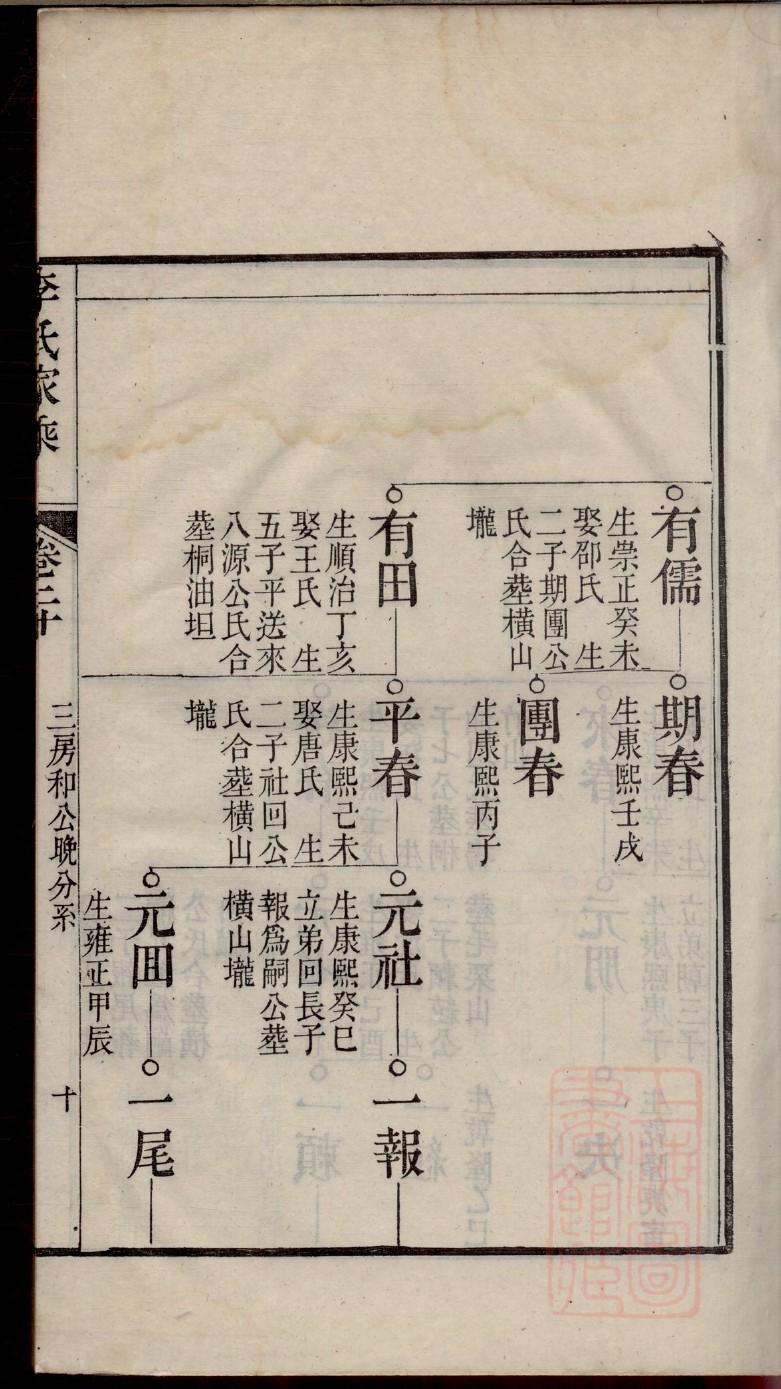 有儒
生崇正癸未
娶邵氏 生
二子期團公
氏合塟橫山
壠
期春
生康熙壬戌
團春
生康熙丙子
有田
生順治丁亥
娶王氏 生
五子平送來
八源公氏合
塟桐油坦
平春
生康熙己未
娶唐氏 生
二子社回公
氏合塟橫山
壠
元社
生康熙癸巳
立弟回長子
報爲嗣公塟
橫山壠
一報
元囬
生雍正甲辰
一尾
李氏家乘
卷二十
三房和公晚分系
十